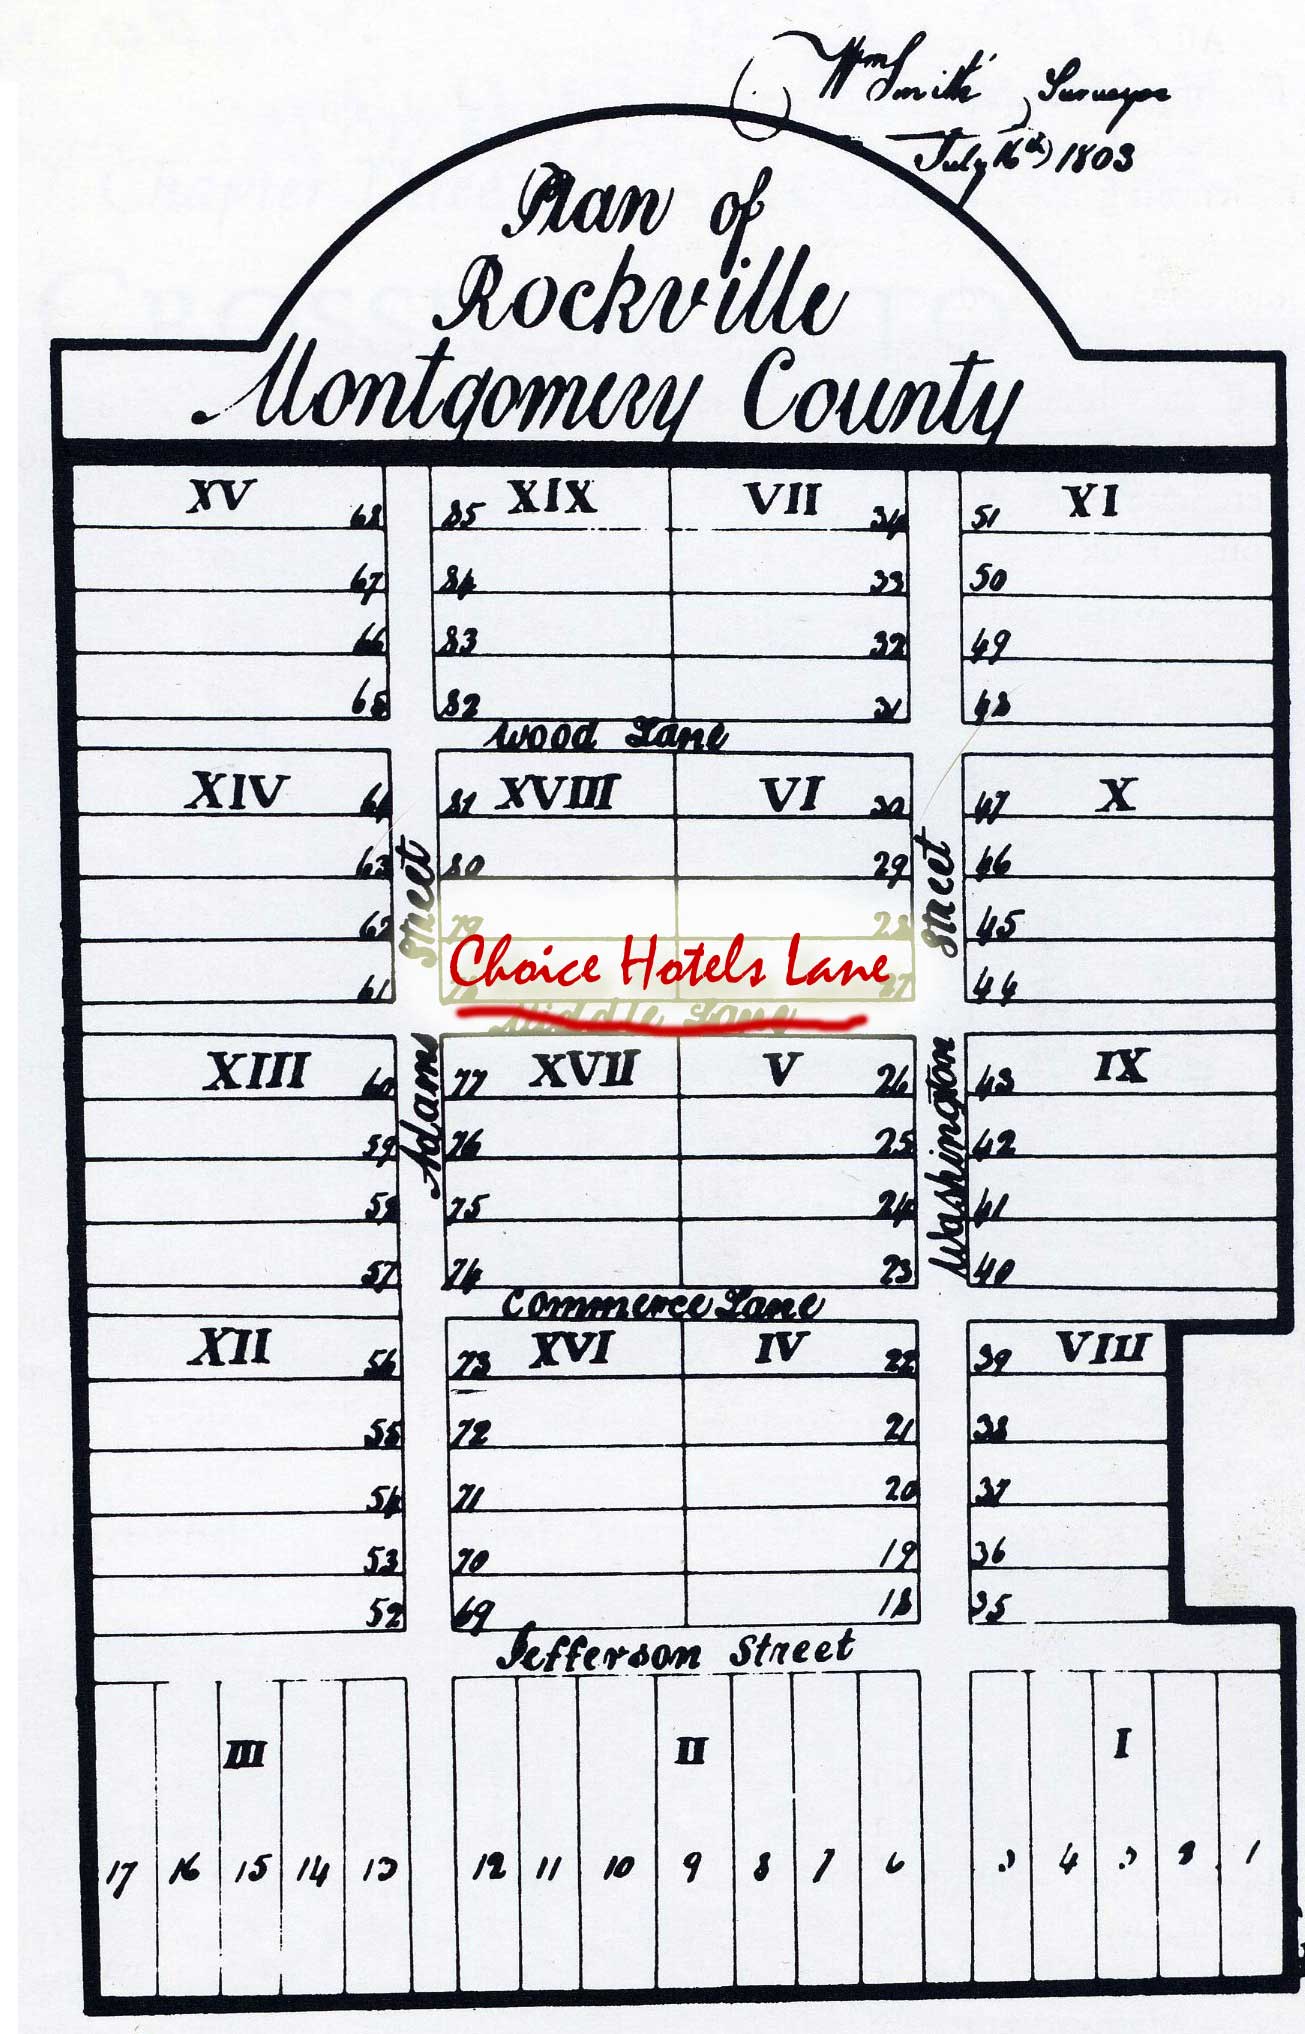 Wm Smith Surveyor
July 16th 1803
Plan of
Rockville
Montgomery County
XV 68 85 XIX VII 34 51 XI
67 84 33 50
66 83 32 49
65 82 31 48
Wood Lane
XIV 64 81 XVIII VI 30 47 X
63 80 29 46
62 79 28 45
Choice Hotels Lane
61 78 27 44
Middle Lane
Street
Street
XIII 60 77 XVII V 26 43 IX
59 76 25 42
58 75 24 41
57 74 23 40
Adams
Washington
Commerce Lane
XII 56 73 XVI IV 22 39 VIII
55 72 21 38
54 71 20 37
53 70 19 36
52 69 18 35
Jefferson Street
III II I
17 16 15 14 13 12 11 10 9 8 7 6 4 2 1